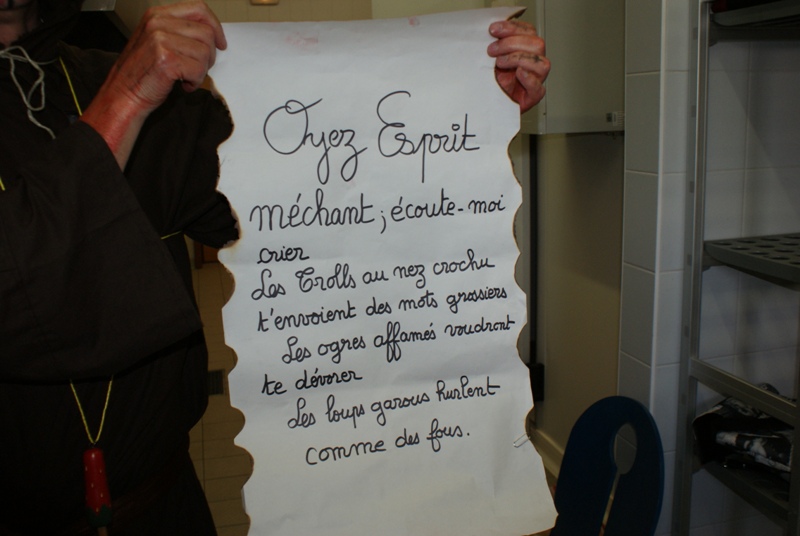 Oyez Esprit
méchant ; écoute-moi
crier
Les Trolls au nez crochu
t'envoient des mots grossiers
Les ogres affamés voudront
te dévorer
Les loups garous hurlent
comme des fous.